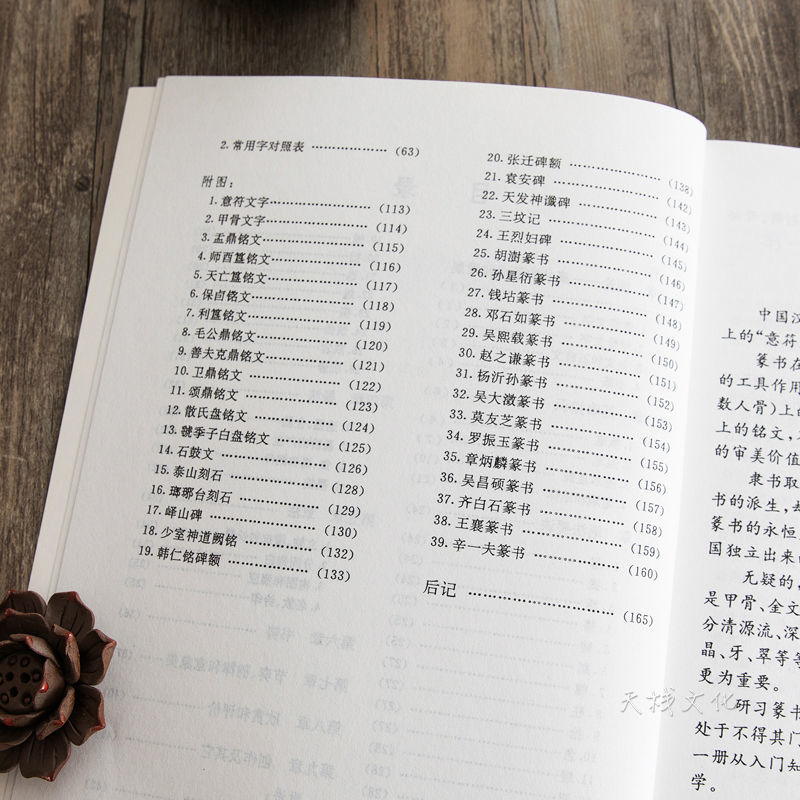 2. 常用字对照表 ……………… (63)
附图：
1. 意符文字……………… (113)
2. 甲骨文字……………… (114)
3. 盂鼎铭文……………… (115)
4. 师酉簋铭文…………… (116)
5. 天亡簋铭文…………… (117)
6. 保卣铭文……………… (118)
7. 利簋铭文……………… (119)
8. 毛公鼎铭文…………… (120)
9. 善夫克鼎铭文………… (121)
10. 卫鼎铭文 …………… (122)
11. 颂鼎铭文 …………… (123)
12. 散氏盘铭文 ………… (124)
13. 虢季子白盘铭文 …… (125)
14. 石鼓文 ……………… (126)
15. 泰山刻石 …………… (128)
16. 瑯琊台刻石 ………… (129)
17. 峄山碑 ……………… (130)
18. 少室神道阙铭 ……… (132)
19. 韩仁铭碑额 ………… (133)
20. 张迁碑额 …………… (138)
21. 袁安碑 ……………… (142)
22. 天发神谶碑 ………… (143)
23. 三坟记 ……………… (144)
24. 王烈妇碑 …………… (145)
25. 胡澍篆书 …………… (146)
26. 孙星衍篆书 ………… (147)
27. 钱坫篆书 …………… (148)
28. 邓石如篆书 ………… (149)
29. 吴熙载篆书 ………… (150)
30. 赵之谦篆书 ………… (151)
31. 杨沂孙篆书 ………… (152)
32. 吴大澂篆书 ………… (153)
33. 莫友芝篆书 ………… (154)
34. 罗振玉篆书 ………… (155)
35. 章炳麟篆书 ………… (156)
36. 吴昌硕篆书 ………… (157)
37. 齐白石篆书 ………… (158)
38. 王襄篆书 …………… (159)
39. 辛一夫篆书 ………… (160)
后记 …………………… (165)
中国汉
上的“意符
篆书在
的工具作用
数人骨)上的
上的铭文,
的审美价值
隶书取
书的派生,
篆书的永恒
国独立出来的
无疑的,
是甲骨、金文
分清源流、深
晶、牙、翠等等
更为重要。
研习篆书
处于不得其门
一册从入门知
学。
天栈文化